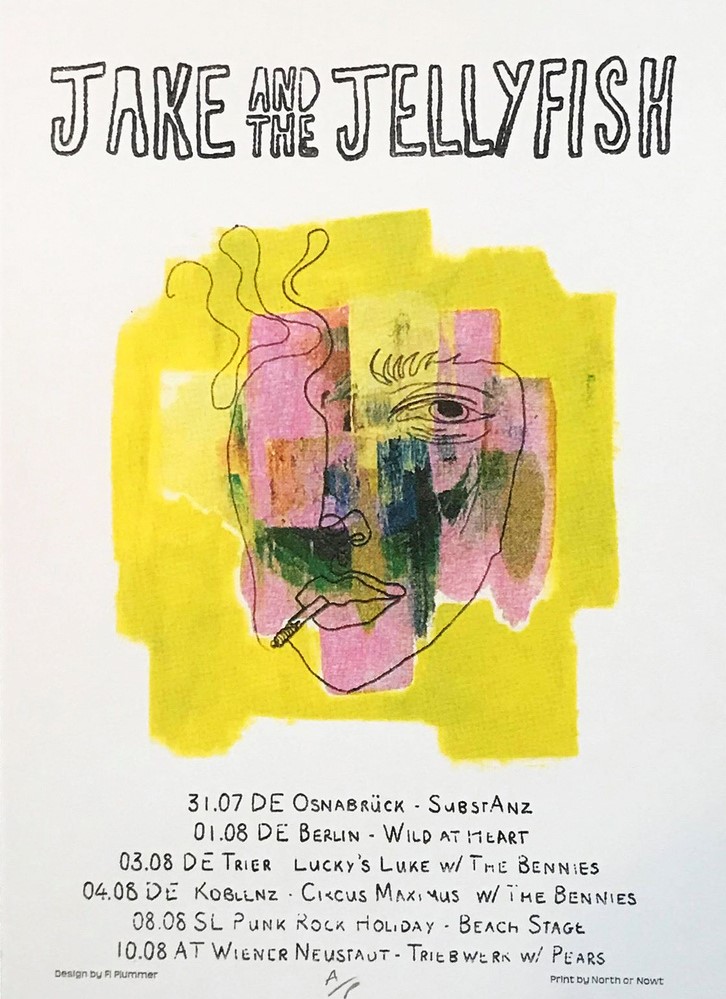 JAKE AND THE JELLYFISH
31.07 DE OSNABRÜCK - SUBSTANZ
01.08 DE BERLIN - WILD AT HEART
03.08 DE TRIER LUCKY'S LUKE W/ THE BENNIES
04.08 DE KOBLENZ - CIRCUS MAXIMUS W/ THE BENNIES
08.08 SL PUNK ROCK HOLIDAY - BEACH STAGE
10.08 AT WIENER NEUSTADT - TRIEBWERK W/ PEARS
Design by Fi Plummer
A/P
Print by North or Nowt